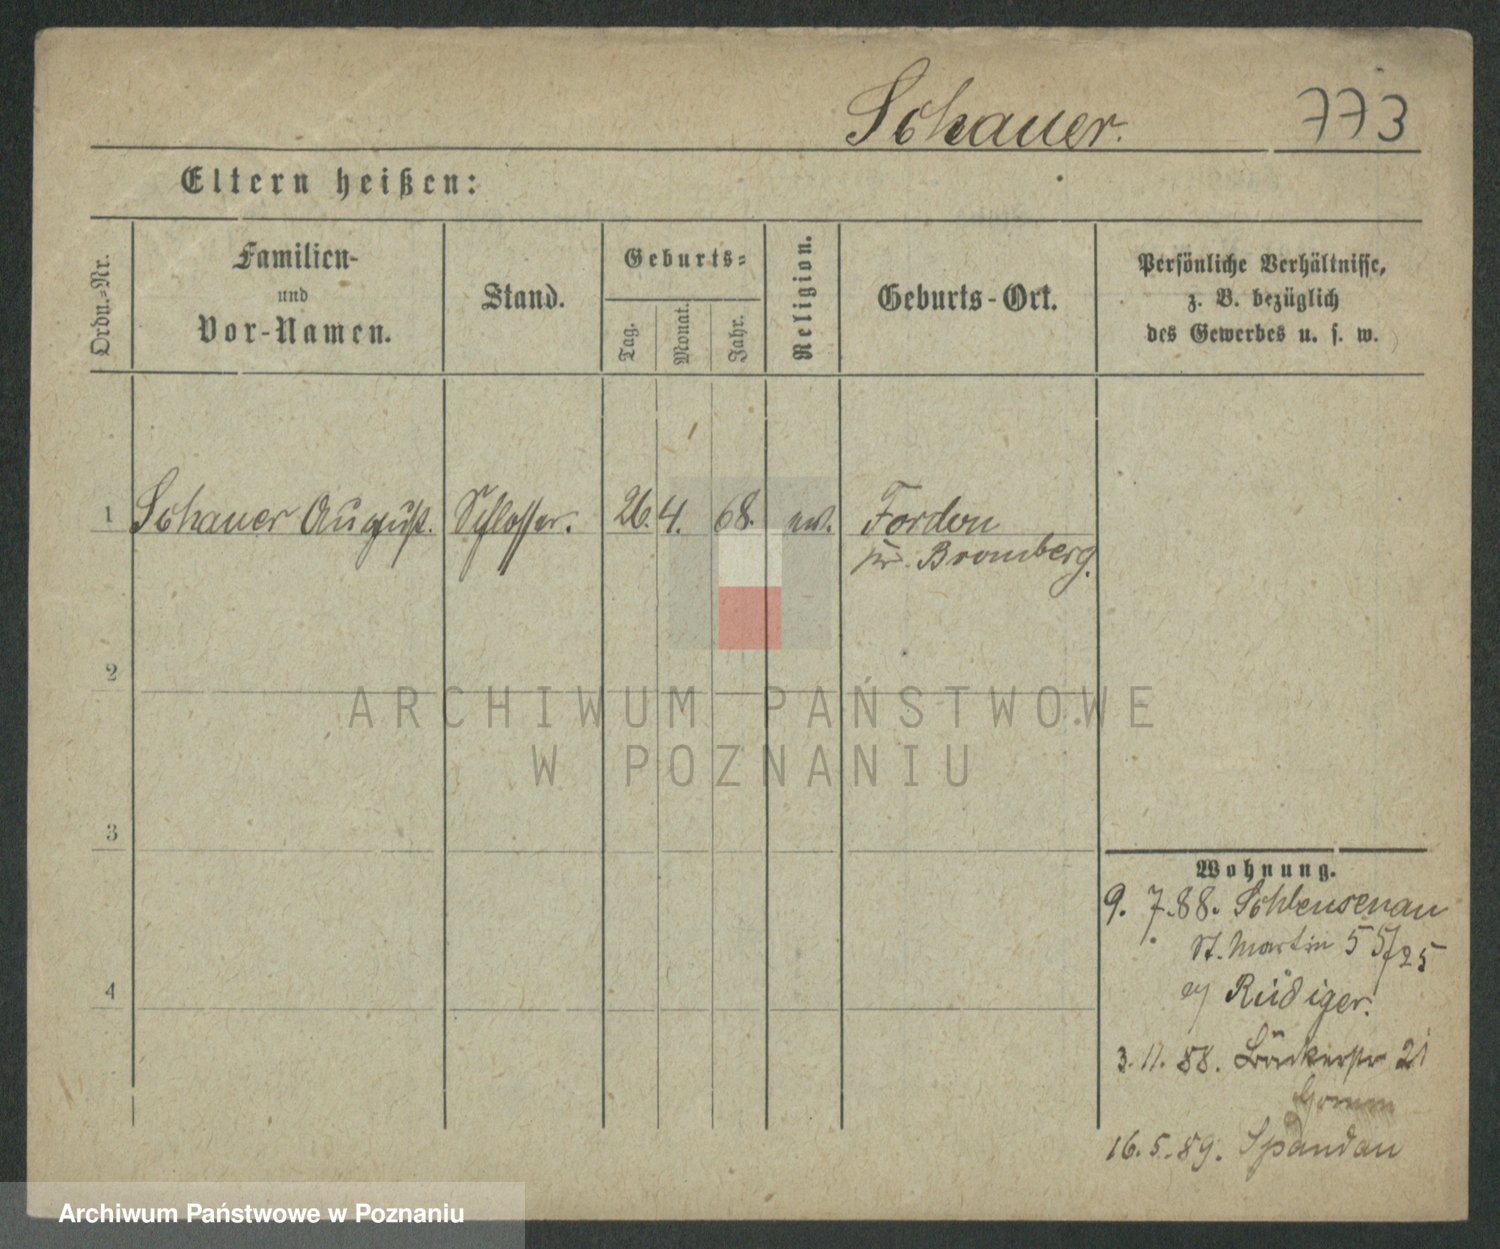 Schauer. 773
Eltern heißen:
Ordn.-Nr.
Familien-
und
Vor-Namen.
Stand.
Geburts-
Tag.
Monat.
Jahr.
Religion.
Geburts-Ort.
Persönliche Verhältnisse,
z. B. bezüglich
des Gewerbes u. s. w.
1 Schauer August. Schlosser. 26. 4. 68. ev. Fordon
pr. Bromberg.
2
3
4
Wohnung.
9. 7. 88. Schleusenau
St. Martin 55/25
Rüdiger.
3. 11. 88. Bäckerstr 21
16. 5. 89. Spandau
ARCHIWUM PAŃSTWOWE
W POZNANIU
Archiwum Państwowe w Poznaniu